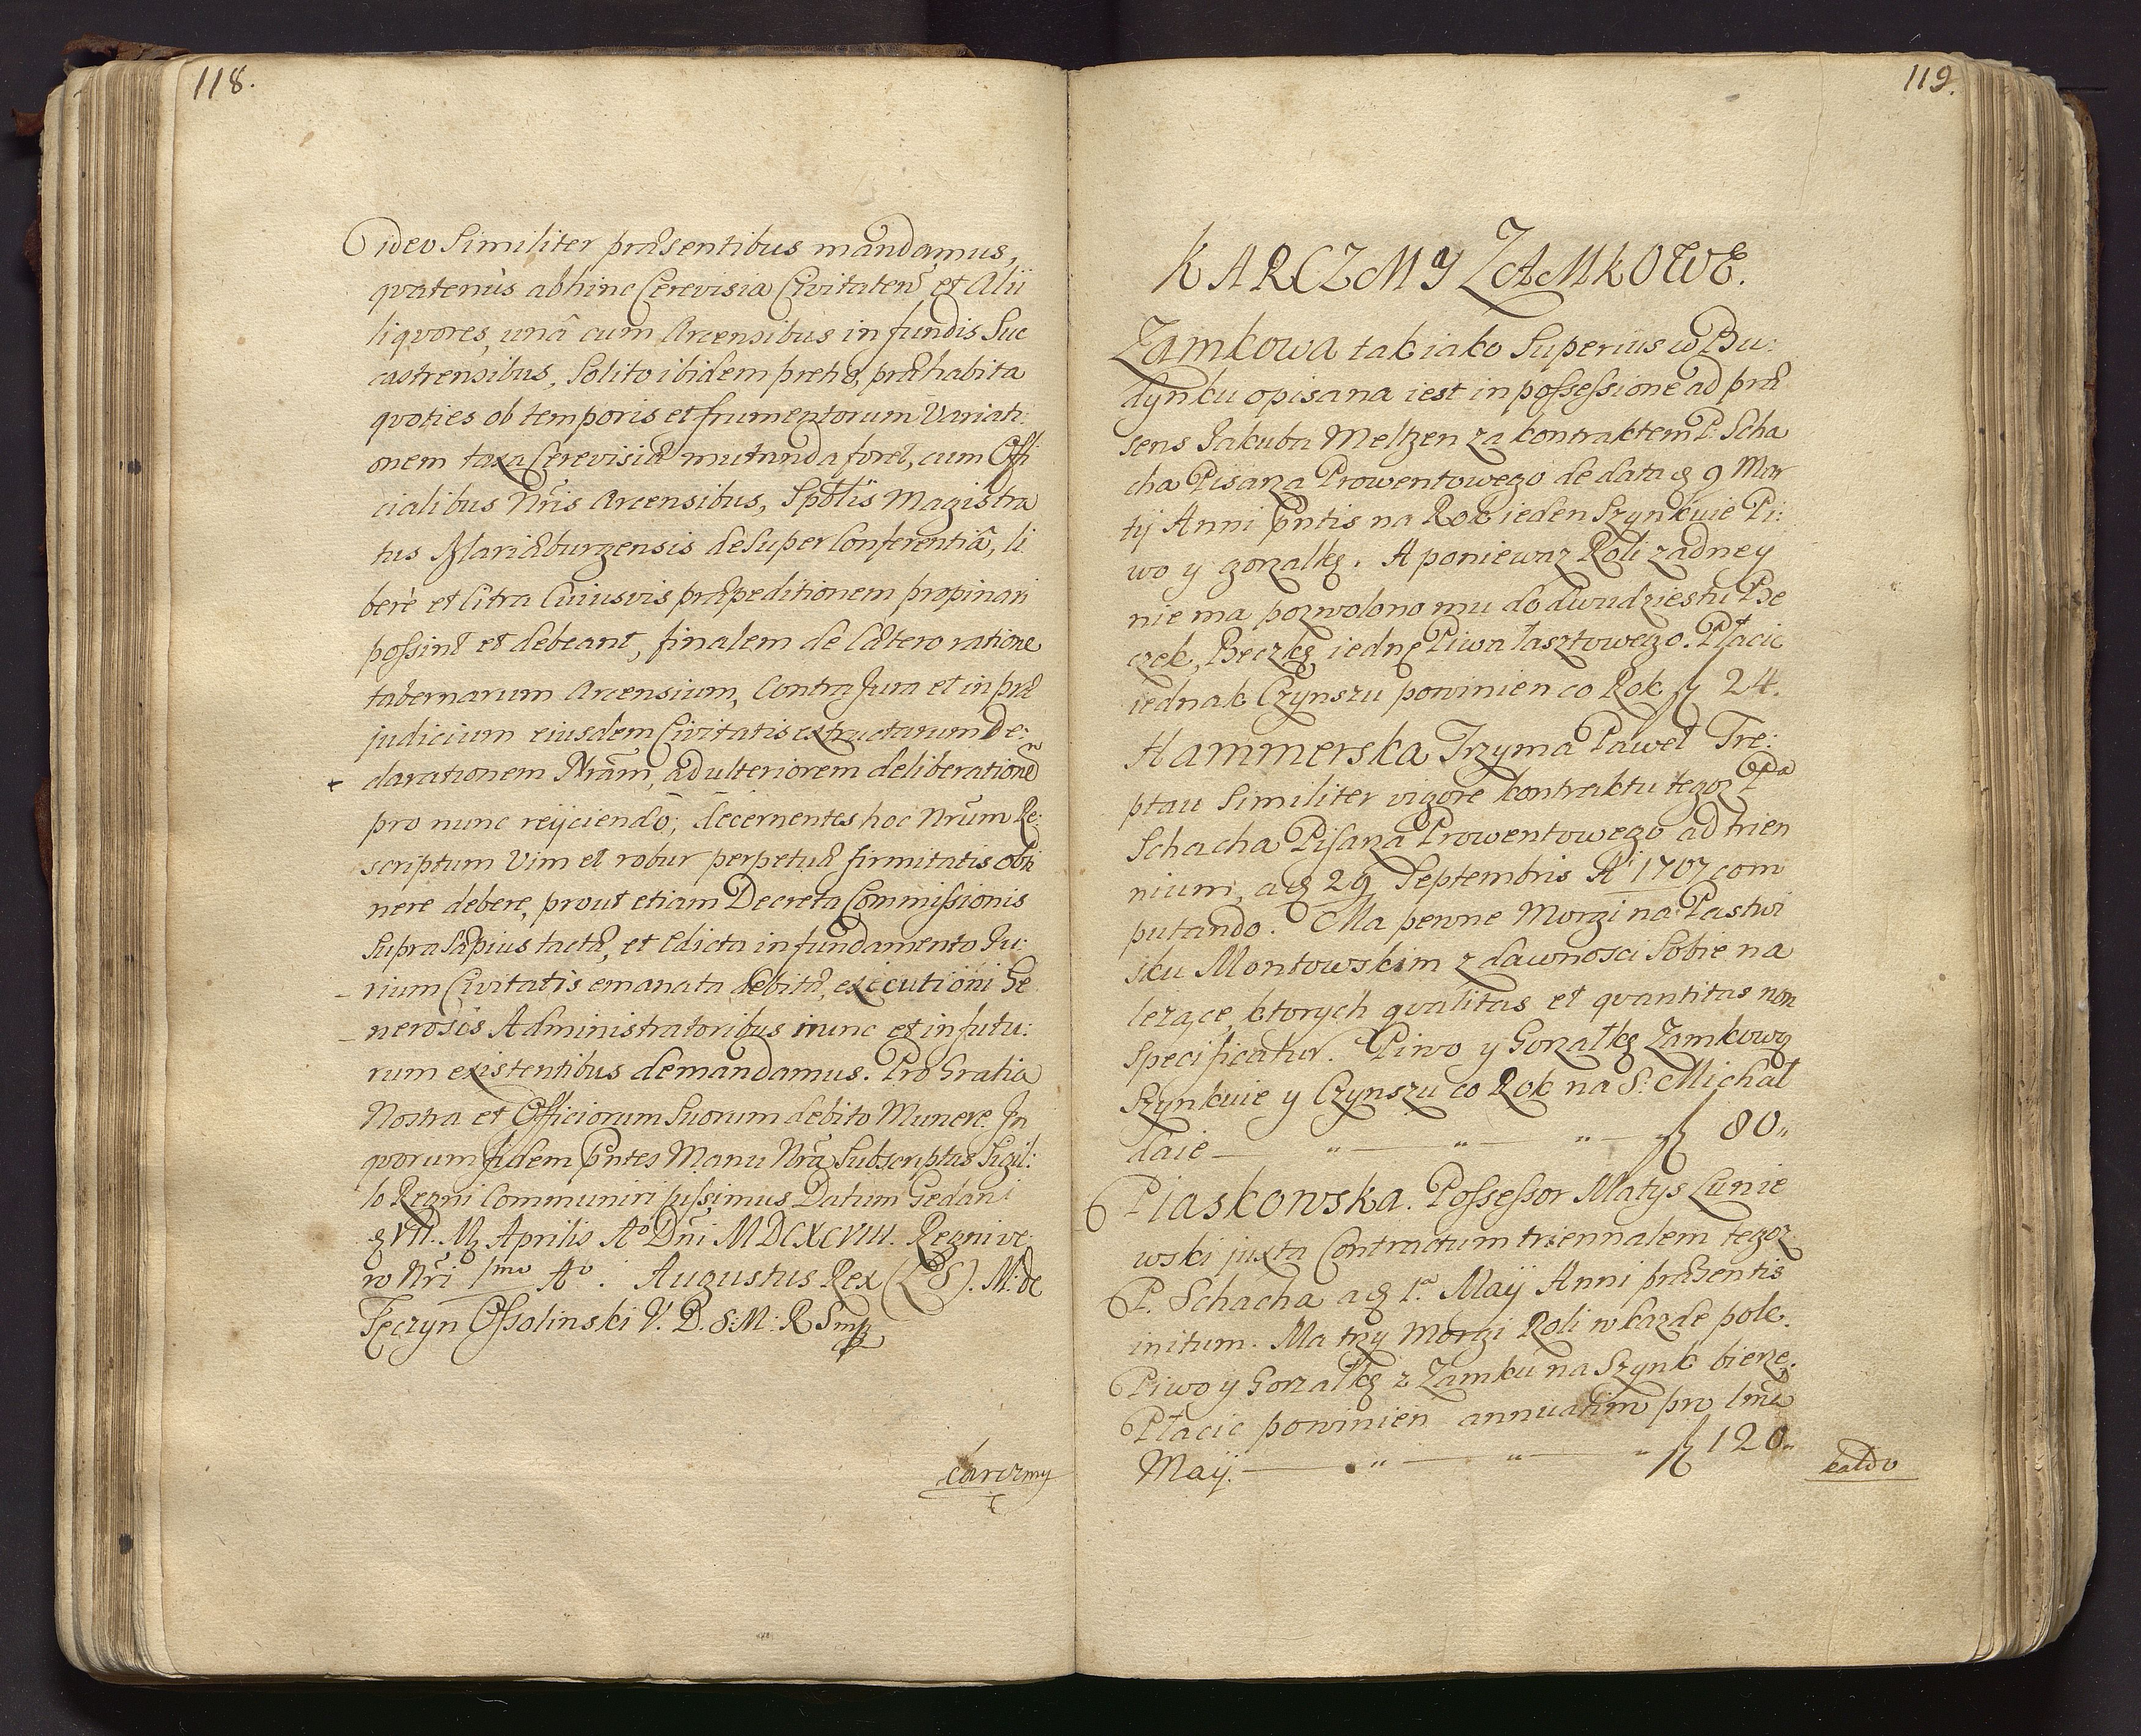 118.
ideo Similiter præsentibus mandamus,
qvatenùs abhinc Cerevisia Civitaten̄ et Alii
liqvores, unâ cum Arcensibus in fundis Suc
castrensibus, Solito ibidem pretio, præhabita
qvoties ob temporis et frumentorum Variati:
onem taxa Cerevisiæ mutanda foret, cum Offi
cialibus Nr̄is Arcensibus, Sp̄blis Magistra
tus Mariæburgensis desuper Conferentiâ, li
berè et Citra Cuiusvis præpeditionem propinari
possint et debeant, finalem de Cætero ratione
tabernarum Arcensium, Contra Jura et in præ
judicium eiusdem Civitatis extructarum De:
clarationem Nr̄am, ad ulteriorem deliberationē
pro nunc reijciendo; decernentes hoc Nr̄um Re:
scriptum Vim et robur perpetuæ firmitatis obti
nere debere, prout etiam Decreta Commissionis
Supra Sæpius tactæ, et Edicta in fundamento Ju:
rium Civitatis emanata debitæ, executioni Ge
nerosis Administratoribus nunc et in futu:
rum existentibus demandamus. Pro Gratia
Nostra et Officiorum Suorum debito Munere. In
qvorum fidem p̄ntes Manu Nr̄a Subscriptas Sigil:
lo Regni Communiri jussimus Datum Gedani
VII. Aprilis Aº Dn̄i MDCXCVIII. Regni ve:
ro Nr̄i Imo Aº. Augustus Rex (LS). M: de
Tęczyn Ossolinski V. D. S: M: R Smp
karczmy
119.
KARCZMY ZAMKOWE.
Zamkowa tak iako Superius w Bu:
dynku opisana iest in possessione ad præ
sens Jakuba Meltzen za kontraktem P: Scha
cha Pisarza Prowentowego de data 9 Mar
tij Anni p̄ntis na Rok ieden Szynkuie Pi:
wo y gorzałkę. A poniewaz Roli zadney
nie ma pozwolono mu do dwudziestu Be
czek, Beczkę iednę Piwa łasztowego. Płacic
iednak Czynszu powinien co Rok fl 24.
Hammerska Trzyma Paweł Tre:
ptau Similiter vigore kontraktu tegoz Pa
Schacha Pisarza Prowentowego ad trien
nium, a 29 Septembris Ai 1707 com
putando. Ma pewne Morgi na Pastwi
sku Montowskim z dawnosci Sobie na
lezące, ktorych qvalitas et qvantitas non
Specificatur. Piwo y Gorzałkę Zamkową
Szynkuie y Czynszu co Rok na S: Michał
daie — „ — „ — „ — fl 80„
Piaskowska. Possessor Matys Lunie
wski juxta Contractum triennalem tegoz
P. Schacha a 1ª Maij Anni præsentis
initum. Ma trzy Morgi Roli w kazde pole.
Piwo y Gorzałkę z Zamku na Szynk bierze.
Płacic powinien annuatim pro 1mā
Maij. — „ — „ — „ fl 120„
kałdo